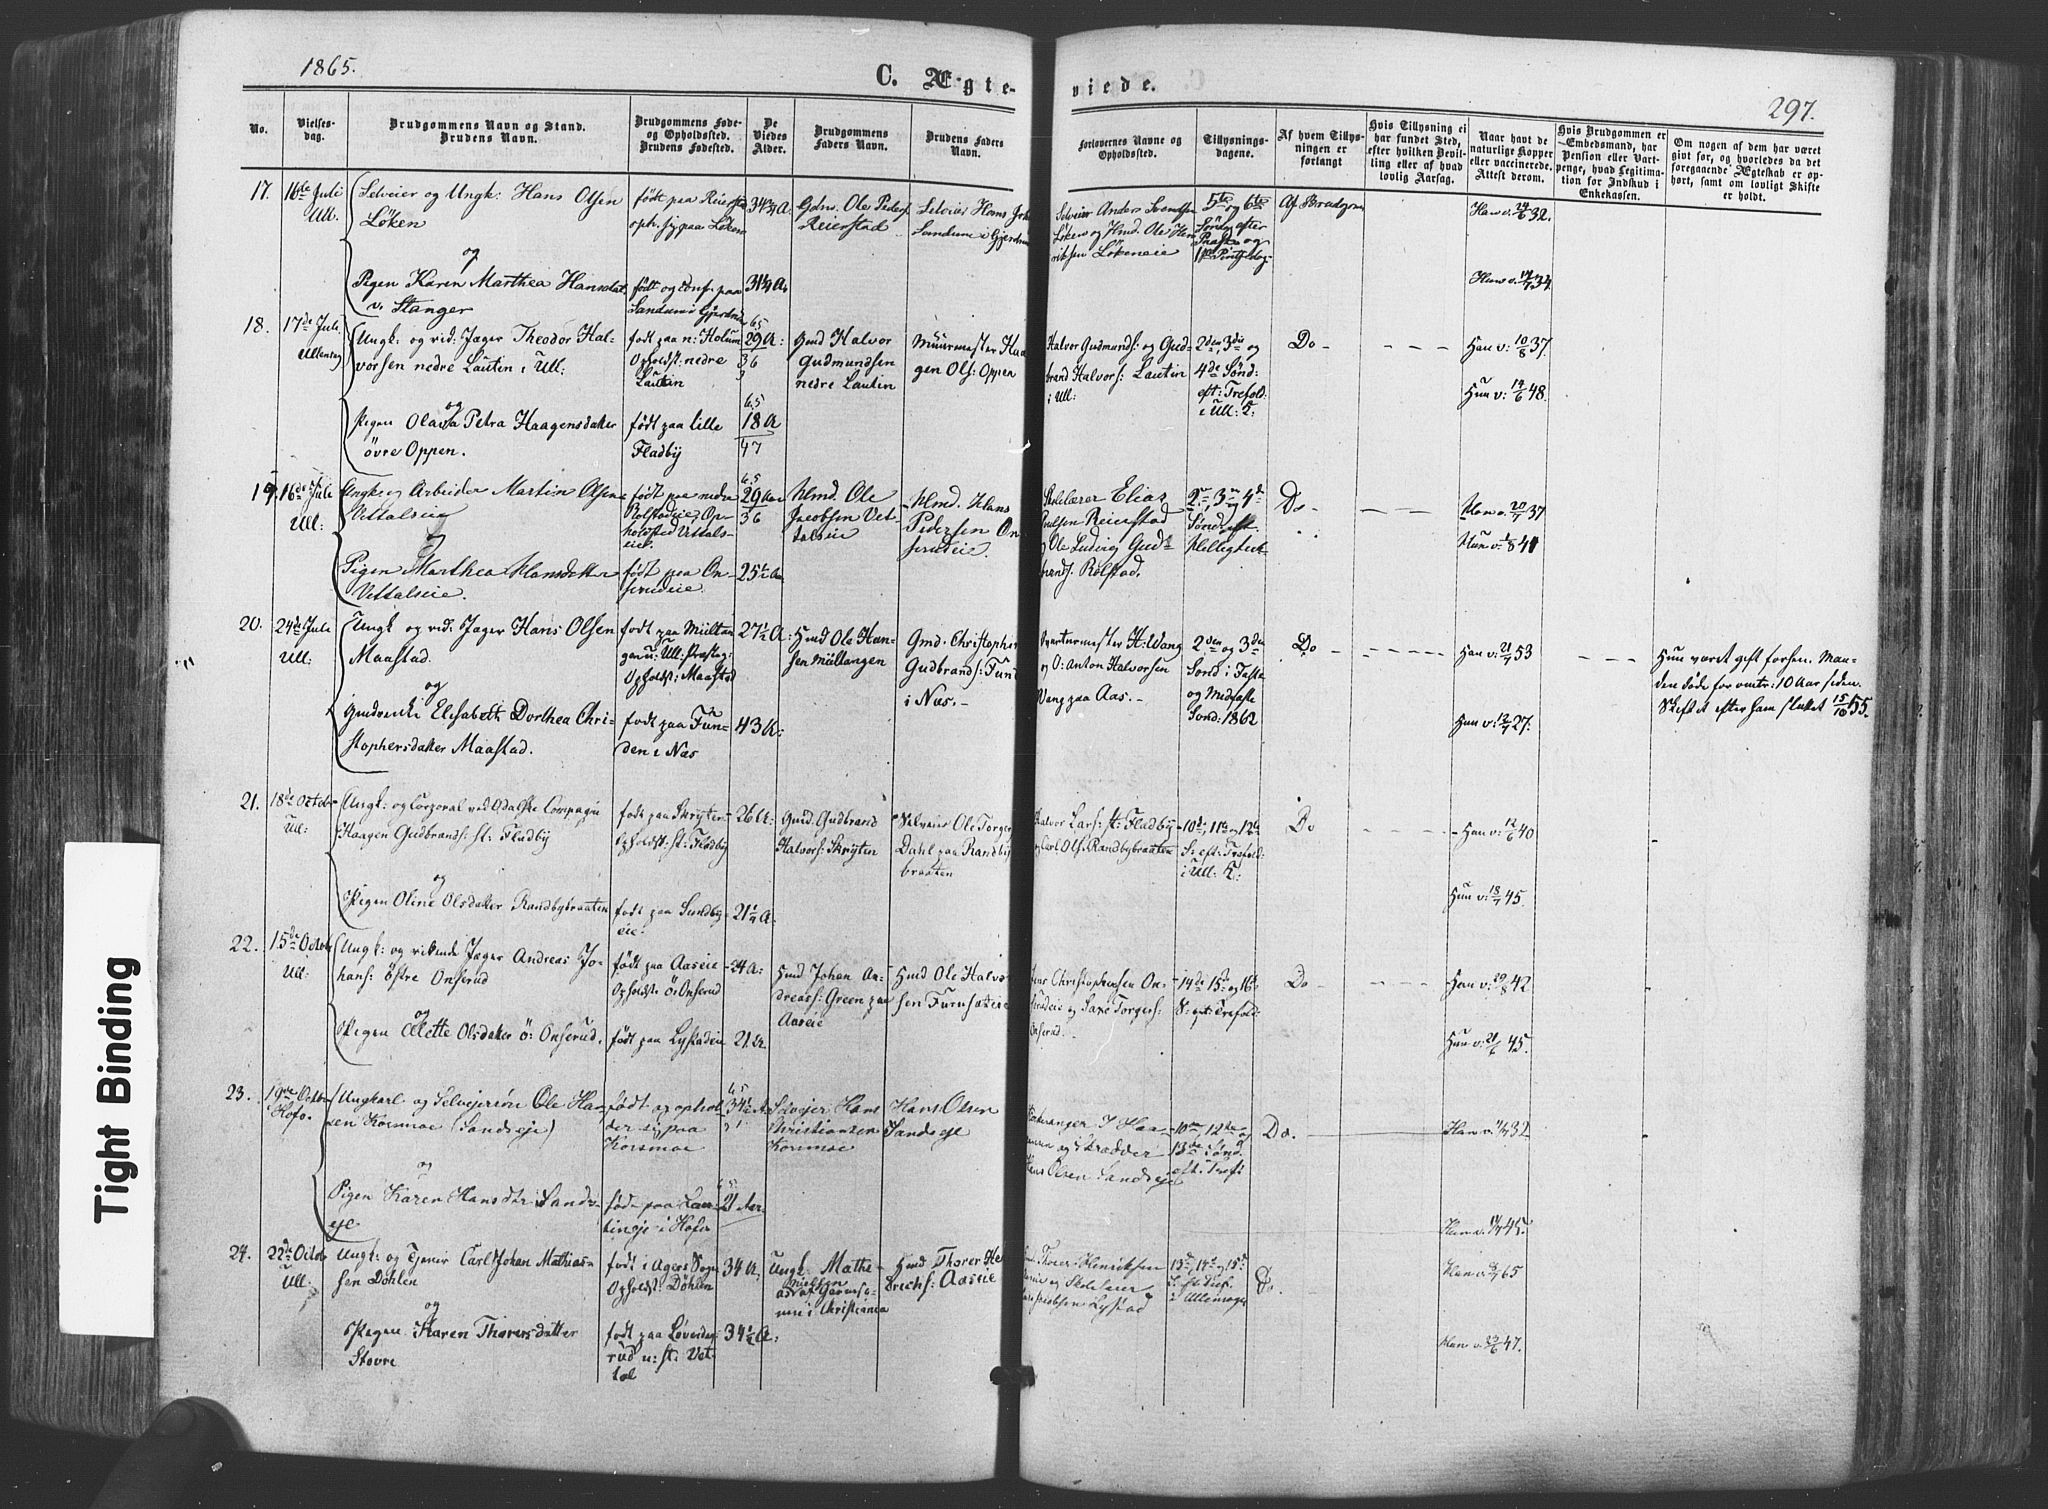 1865.
C. Ægte-
viede.
297.
No.
Vielses-
dag.
Brudgommens Navn og Stand.
Brudens Navn.
Brudgommens Føde-
og Opholdssted.
Brudens Fødested.
De
Viedes
Alder.
Brudgommens
Faders Navn.
Brudens Faders
Navn.
Forlovernes Navne og
Opholdssted.
Tillysnings-
dagene.
Af hvem Tillys-
ningen er
forlangt
Hvis Tillysning ei
har fundet Sted,
efter hvilken Bevil-
ling eller af hvad
lovlig Aarsag.
Naar havt de
naturlige Kopper
eller vaccinerede.
Attest derom.
Hvis Brudgommen er
Embedsmand, har
Pension eller Vart-
penge, hvad Legitima-
tion for Indskud i
Enkekassen.
Om nogen af dem har været
givt før, og hvorledes da det
foregaaende Ægteskab er op-
hørt, samt om lovligt Skifte
er holdt.
17.
16de Juli
Ull.
Selveier og Ungk: Hans Olsen
Løken
og
Pigen Karen Marthea Hansdat.
v. Stanger
født paa Reierstad
oph. sig paa Løken
født og conf. paa
Sandum i Gjerdrum
34 3/4 A.
31 1/4 A.
Gdm. Ole Peders.
Reierstad
Selveier Hans
Sandum i Gjerdrum
Selveier Anders Svendsen
Løken og Hmd. Ole Hen
riksen Løkeneie
5te og 6te
Sønd. efter
Paaske og
1ste Pintsedag
Af Brudgom
Han v. 24/6 32.
Hun v. 14/7 34.
18.
17de Juli
Ullensag
Ungk: og vid: Jæger Theodor Hal-
vorsen nedre Lautin i Ull:
og
Pigen Olava Petra Haagensdatter
øvre Oppen.
født paa n: Holum
Opholdst: nedre
Lautin
født paa lille
Fladby
65
29 A:
36
3
65
18 A
47
Gmd Halvor
Gudmundsen
nedre Lautin
Muurmester Haa
gen Ols: Oppen
Halvor Gudmunds: og Gud-
brand Halvors: Lautin
i Ull:
2den, 3die og
4de Sønd:
eft: Trefold:
i Ull: K:
Do -
Han v: 10/8 37.
Hun v: 19/6 48.
19.
16de Juli
Ull:
Ungk. og Arbeider Martin Olsen
Vettalseie
og
Pigen Marthea Hansdatter
Vettalseie.
født paa nedre
Rolstadeie, Op-
holdsted Vettals-
eie.
født paa On-
serudeie
65
29 Aar
36
25 1/2 Aar
Hmd. Ole
Jacobsen Vet-
talseie
Hmd. Hans
Pedersen On
serudeie.
Skolelærer Elias
Poulsen Reierstad
og Ole Ludvig Gud-
brands. Rolstad.
2n, 3n og 4de
Sønd. eft.
Helligtrek.
Do -
Han v. 20/7 37
Hun v. 1/8 41
20.
24de Juli
Ull:
Ungk og vid: Jæger Hans Olsen
Maastad.
og
Gmdenke Elisabeth Dorthea Chri-
stophersdatter Maastad.
født paa Multan
gen u: Ull: Præsteg:
Opholdst: Maastad
født paa Fun-
den i Næs
27 1/2 A:
43 A:
Hmd Ole Han-
sen Multangen
Gmd. Christopher
Gudbrands: Fund
i Næs. -
Qvartermester H. Wang
og O: Anton Halvorsen
Vang paa Aas. -
2den og 3die
Sønd i Faste
og Midfaste
Sond: 1862
Do
Han v: 21/7 53
Hun v: 12/7 27.
Hun været gift forhen. Man-
den døde for omtr: 10 Aar siden.
Skiftet efter ham sluttet 15/10 55.
21.
18de Octobr
Ull:
Ungk: og Corporal ved Odalske Compagni
Haagen Gudbrands: st: Fladby
og
Pigen Oline Olsdatter Randbybraaten
født paa Skryten
Opholdst: st: Fladby
født paa Sundby
eie:
26 A:
21 1/4 A.
Gmd Gudbrand
Halvors: Skryten
Selveier Ole Torger
Dahl paa Randby
braaten
Halvor Lars: st: Fladby
og Carl Ols: Randbybraaten
10de, 11te og 12te
S: eft: Trefold:
i Ull: K:
Do
Han v: 12/6 40
Hun v: 18/7 45.
22.
15de Octob
Ull:
Ungk: og virkende Jæger Andreas Jo-
hans: Østre Onserud
og
Pigen Olette Olsdatter ö: Onserud.
født paa Aaseie
Opholdst: ö: Onserud
født paa Lystadeie
24 A:
21. A.
Hmd Johan An-
dreass: Green paa
Aaseie
Hmd Ole Halvor
sen Furusæteie
Hans Christophersen On-
serudeie og Saxe Torgers:
Onserud.
14de 15de og 16de
S: eft: Trefold:
Do
Han v: 29/8 42
Hun v: 21/6 45.
23.
19de Octbr
Hofo.
Ungkarl og Selvejersøn Ole Han
sen Korsmoe (Sandseje)
og
Pigen Karen Hansdtr: Sands-
eje
født og ophol
der sig paa
Korsmoe
født paa Lau-
tineje i Hofo
34 1/2 A
21 Aar
Selvejer Hans
Christiansen
Korsmoe
Hans Olsen
Sandseje
Kirkesanger J. Haa-
og Skrædder
Hans Olsen Sandseje
10de, 12te og
13de Sønd.
eft. Trefi
Do.
Han v. 1/7 32
Hun v. 14/7 45.
24.
22de Octob
Ull:
Ungk: og Tjener Carl Johan Mathias-
sen Döhlen
og
Pigen Karen Thorersdatter
Stovre
født i Agers Sogn
Opholdst: Döhlen
født paa Løverdag
rud u: st: Vet
tal
34 A.
34 1/2 A:
Ungk. Mathe-
Nielsen
i Christiania
Hmd Thorer He
drichs: Aaseie
Thorer Henriksen
Aaseie og Skolelærer
Jacobsen Lystad
13de, 14de og 15de
S. eft Tref.
i Ullensager
Do.
Han v. 2/7 65
Hun v. 23/6 47.
Tight Binding